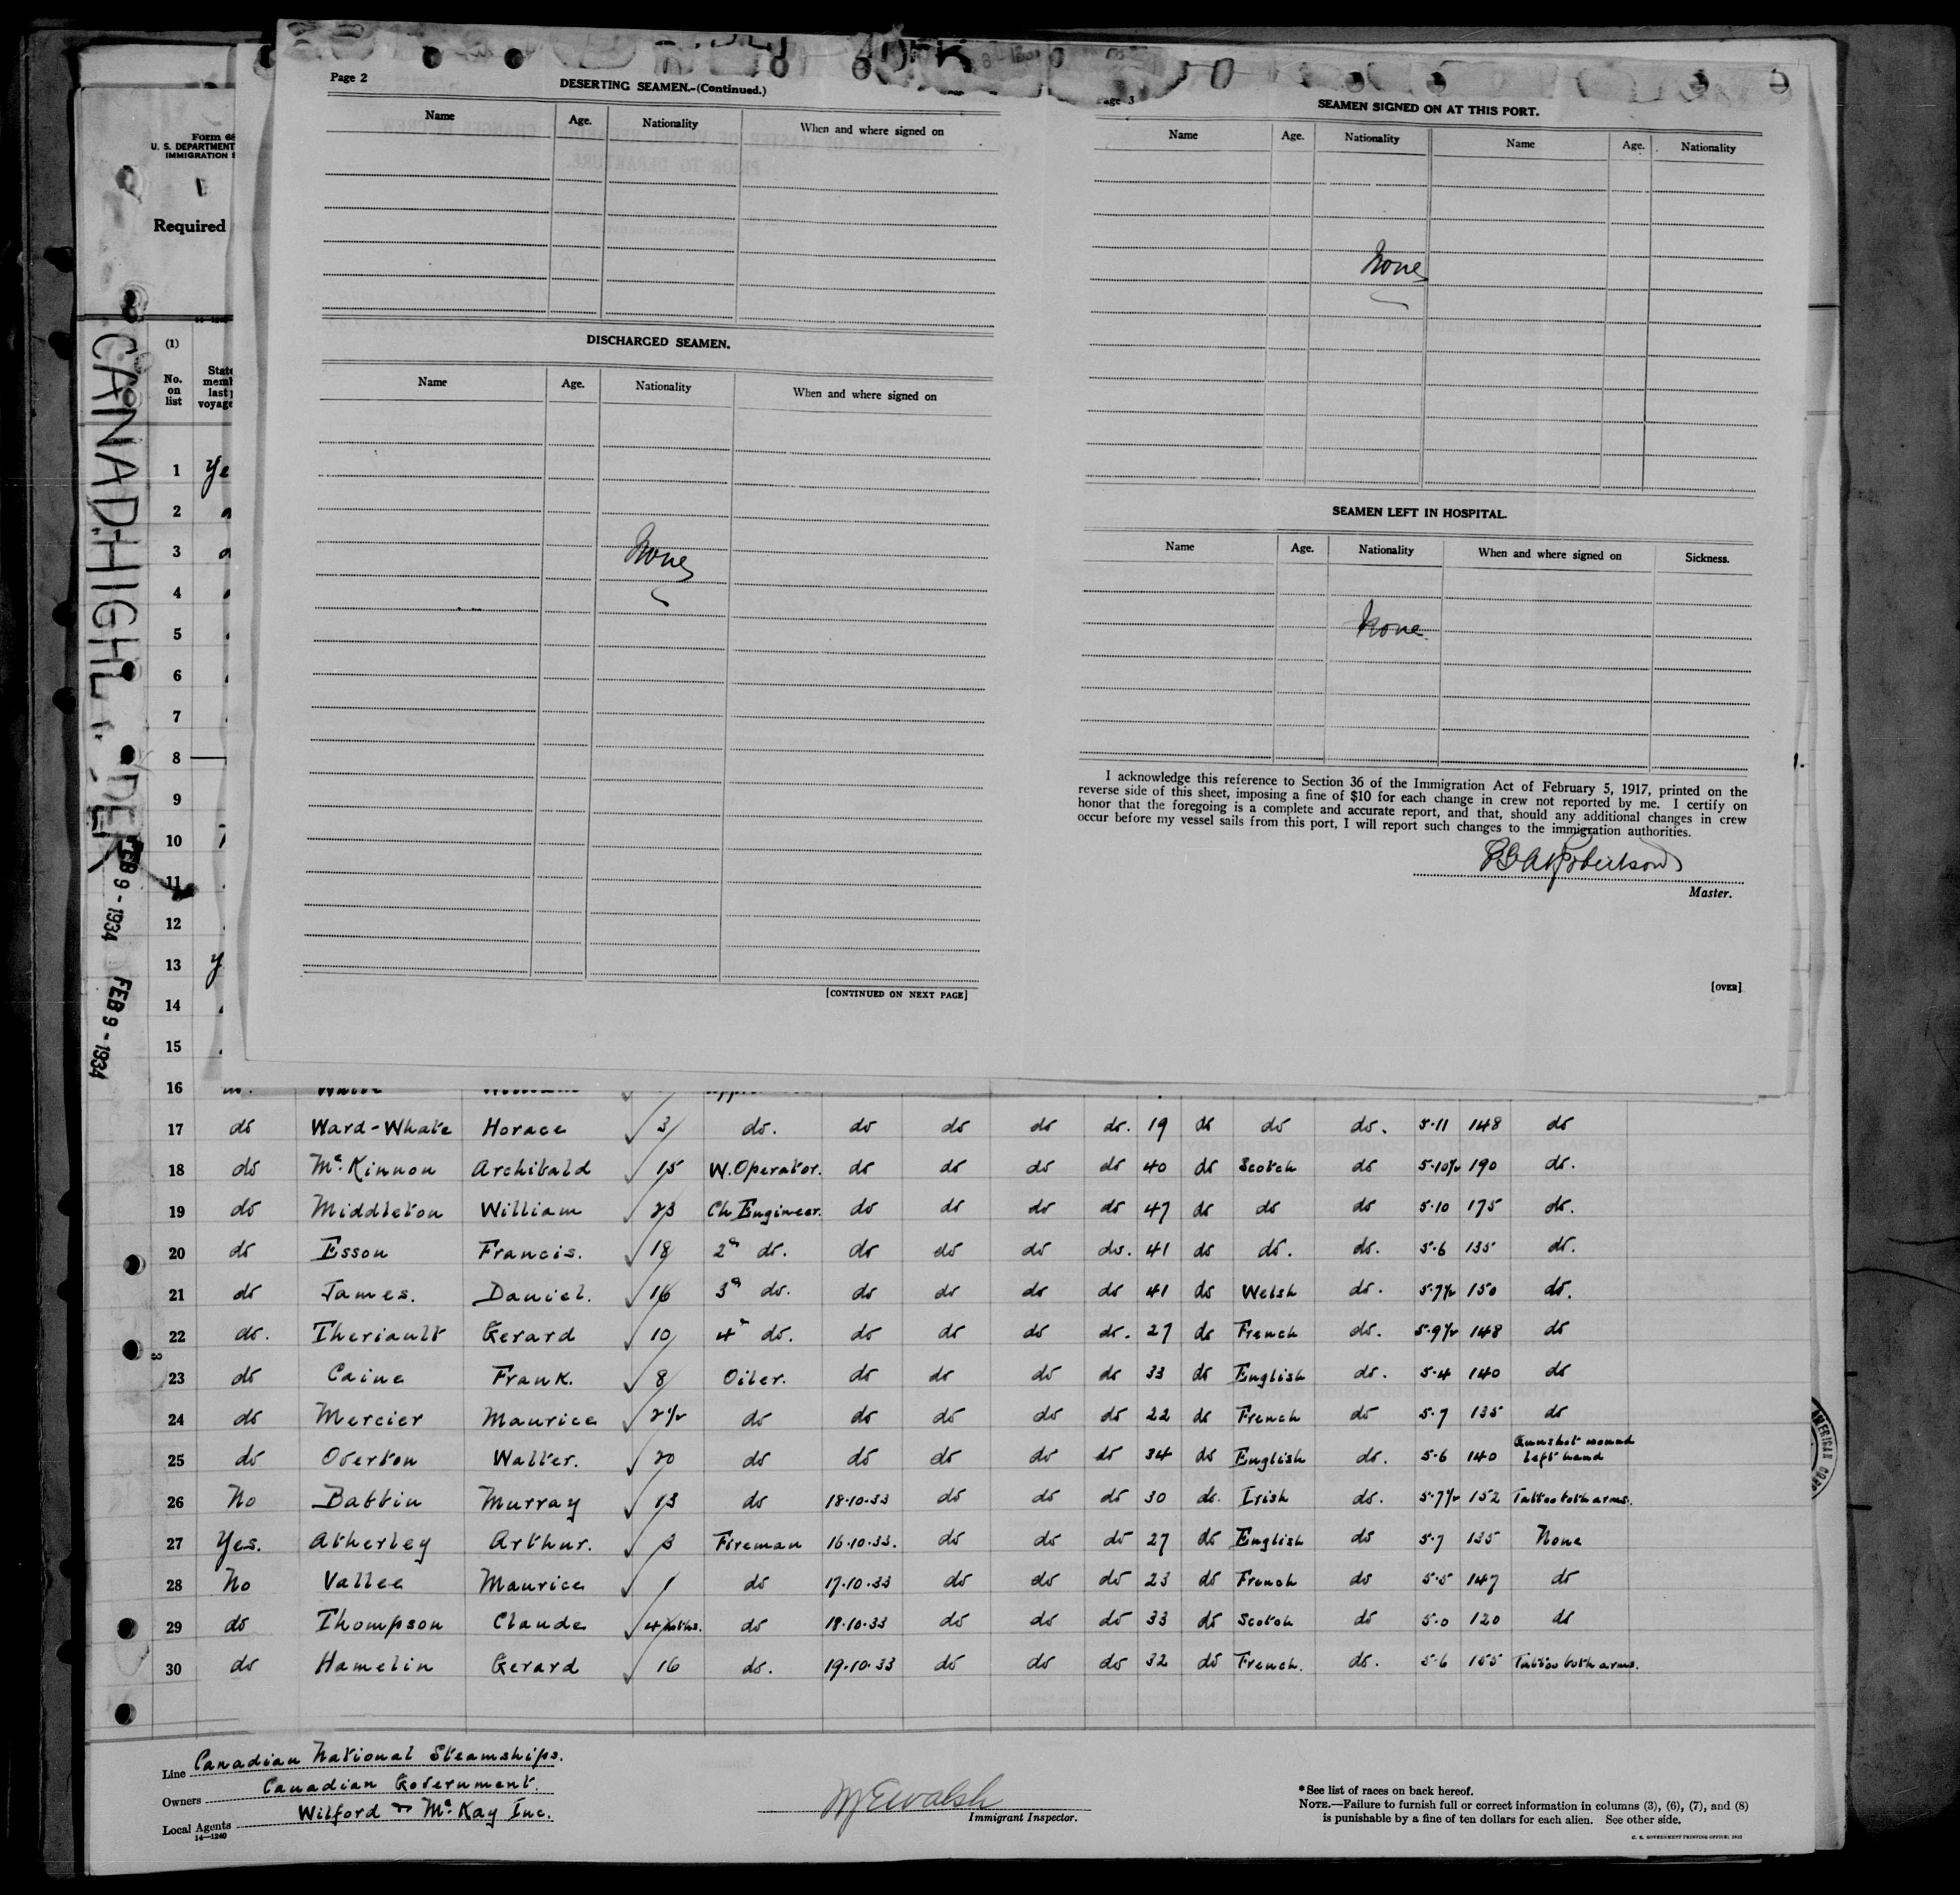 Page 2
DESERTING SEAMEN.-(Continued.)
Name Age. Nationality When and where signed on
DISCHARGED SEAMEN.
Name Age. Nationality When and where signed on
None
[CONTINUED ON NEXT PAGE]
Page 3
SEAMEN SIGNED ON AT THIS PORT.
Name Age. Nationality Name Age. Nationality
None
SEAMEN LEFT IN HOSPITAL.
Name Age. Nationality When and where signed on Sickness.
None
I acknowledge this reference to Section 36 of the Immigration Act of February 5, 1917, printed on the
reverse side of this sheet, imposing a fine of $10 for each change in crew not reported by me. I certify on
honor that the foregoing is a complete and accurate report, and that, should any additional changes in crew
occur before my vessel sails from this port, I will report such changes to the immigration authorities.
Robertson
Master.
[OVER]
Form 68
U. S. DEPARTMENT
IMMIGRATION S
Required
CANAD HIGHL DER
FEB 9 - 1934
FEB 9 - 1934
(1)
No.
on
list
State
meml
last
voyage
1 Ye
2
3
4
5
6
7
8
9
10
11
12
13 y
14
15
16
17 do Ward-Whate Horace 3 do. do do do do. 19 do do do. 5·11 148 do
18 do Mc.Kinnon Archibald 15 W.Operator. do do do do 40 do Scotch do 5·10½ 190 do.
19 do Middleton William 23 Ch Engineer. do do do do 47 do do do 5·10 175 do.
20 do Esson Francis. 18 2n do. do do do do. 41 do do. do. 5·6 135 do.
21 do James. Daniel. 16 3n do. do do do do 41 do Welsh do. 5·7½ 150 do.
22 do. Theriault Gerard 10 4n do. do do do do. 27 do French do. 5·9½ 148 do
23 do Caine Frank. 8 Oiler. do do do do 33 do English do. 5·4 140 do
24 do Mercier Maurice 2½ do do do do do 22 do French do 5·7 135 do
25 do Overton Walter. 20 do do do do do 34 do English do. 5·6 140 Gunshot wound left hand
26 No Babbin Murray 13 do 18·10·33 do do do 30 do. Irish do. 5·7½ 152 Tattoo both arms.
27 Yes. Atherley Arthur. 3 Fireman 16·10·33. do do do 27 do English do 5·7 135 None
28 No Vallee Maurice 1 do 17·10·33 do do do 23 do French do 5·5 147 do
29 do Thompson Claude 4 mths. do 18·10·33 do do do 33 do Scotch do 5·0 120 do
30 do Hamelin Gerard 16 do. 19·10·33 do do do 32 do French. do. 5·6 155 Tattoo both arms.
Line Canadian National Steamships.
Owners Canadian Government.
Local Agents Wilford & Mc.Kay Inc.
14—1240
Walsh
Immigrant Inspector.
*See list of races on back hereof.
NOTE.—Failure to furnish full or correct information in columns (3), (6), (7), and (8)
is punishable by a fine of ten dollars for each alien. See other side.